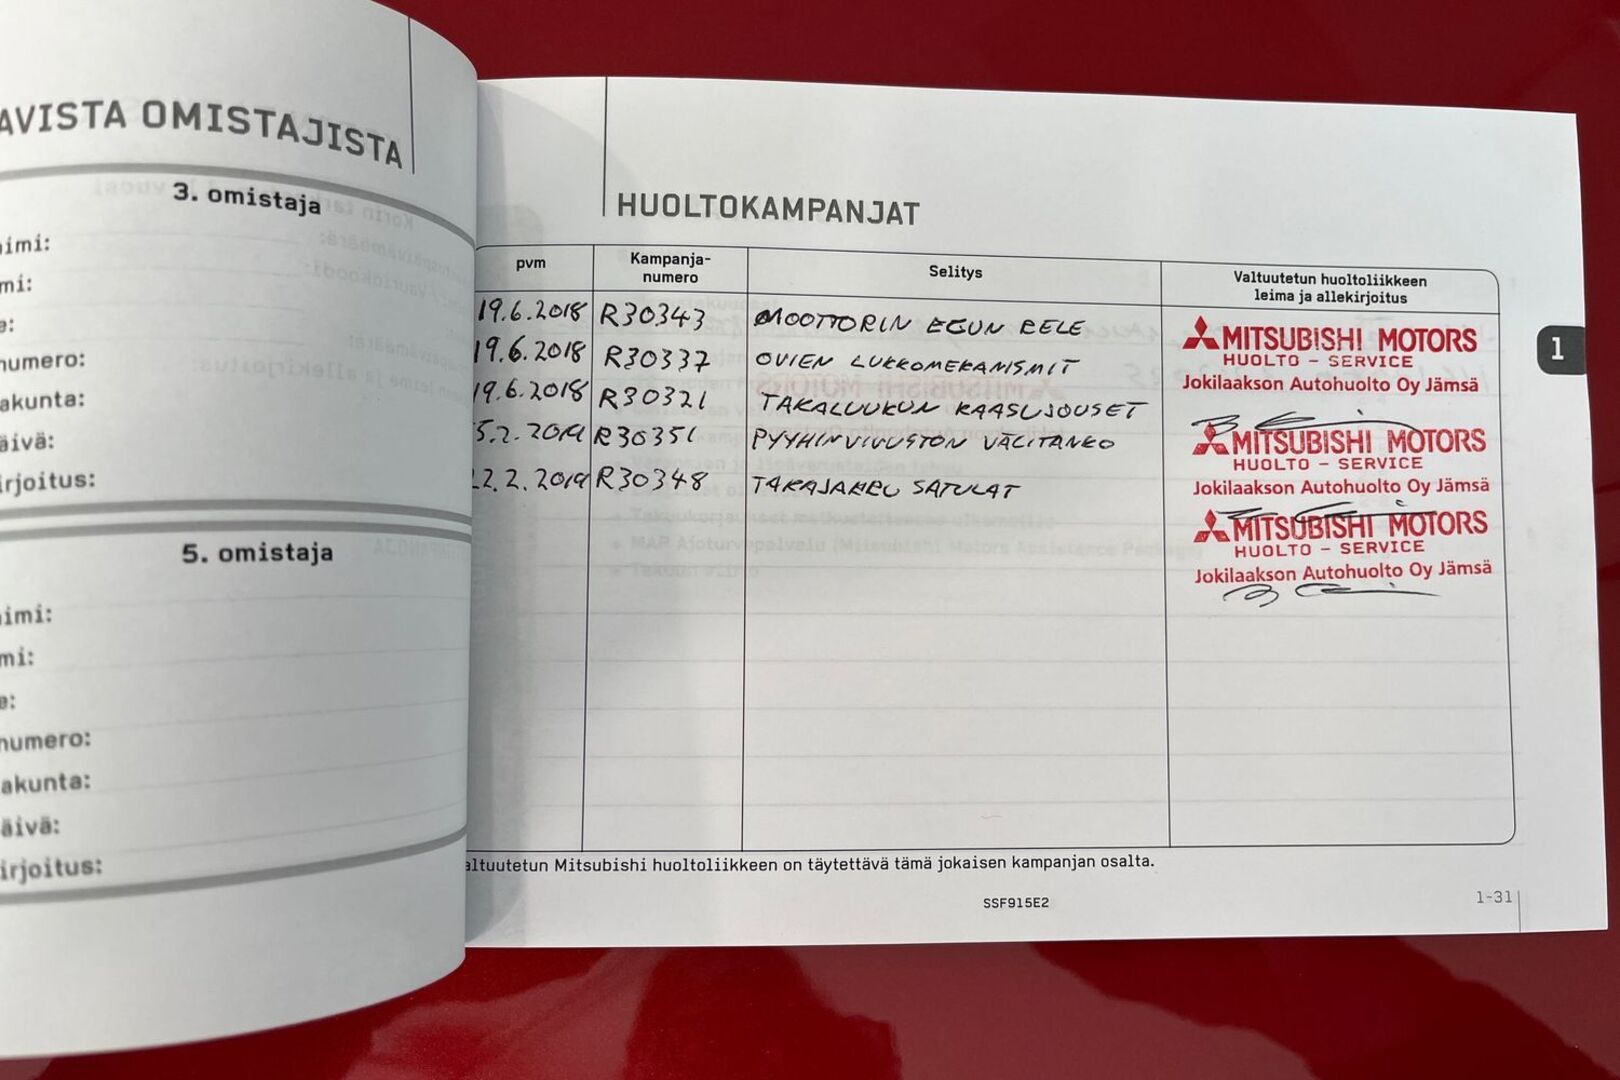 AVISTA OMISTAJISTA
3. omistaja
imi:
mi:
e:
numero:
akunta:
äivä:
irjoitus:
5. omistaja
imi:
mi:
e:
numero:
akunta:
äivä:
irjoitus:
HUOLTOKAMPANJAT
pvm
Kampanja-
numero
Selitys
Valtuutetun huoltoliikkeen
leima ja allekirjoitus
19.6.2018 R30343 MOOTTORIN ECUN RELE
19.6.2018 R30337 OVIEN LUKKOMEKANISMIT
19.6.2018 R30321 TAKALUUKUN KAASUJOUSET
5.2.2019 R30351 PYYHINVIVUSTON VÄLITANKO
22.2.2019 R30348 TAKAJARRU SATULAT
MITSUBISHI MOTORS
HUOLTO - SERVICE
Jokilaakson Autohuolto Oy Jämsä
MITSUBISHI MOTORS
HUOLTO - SERVICE
Jokilaakson Autohuolto Oy Jämsä
MITSUBISHI MOTORS
HUOLTO - SERVICE
Jokilaakson Autohuolto Oy Jämsä
1
altuutetun Mitsubishi huoltoliikkeen on täytettävä tämä jokaisen kampanjan osalta.
SSF915E2
1-31